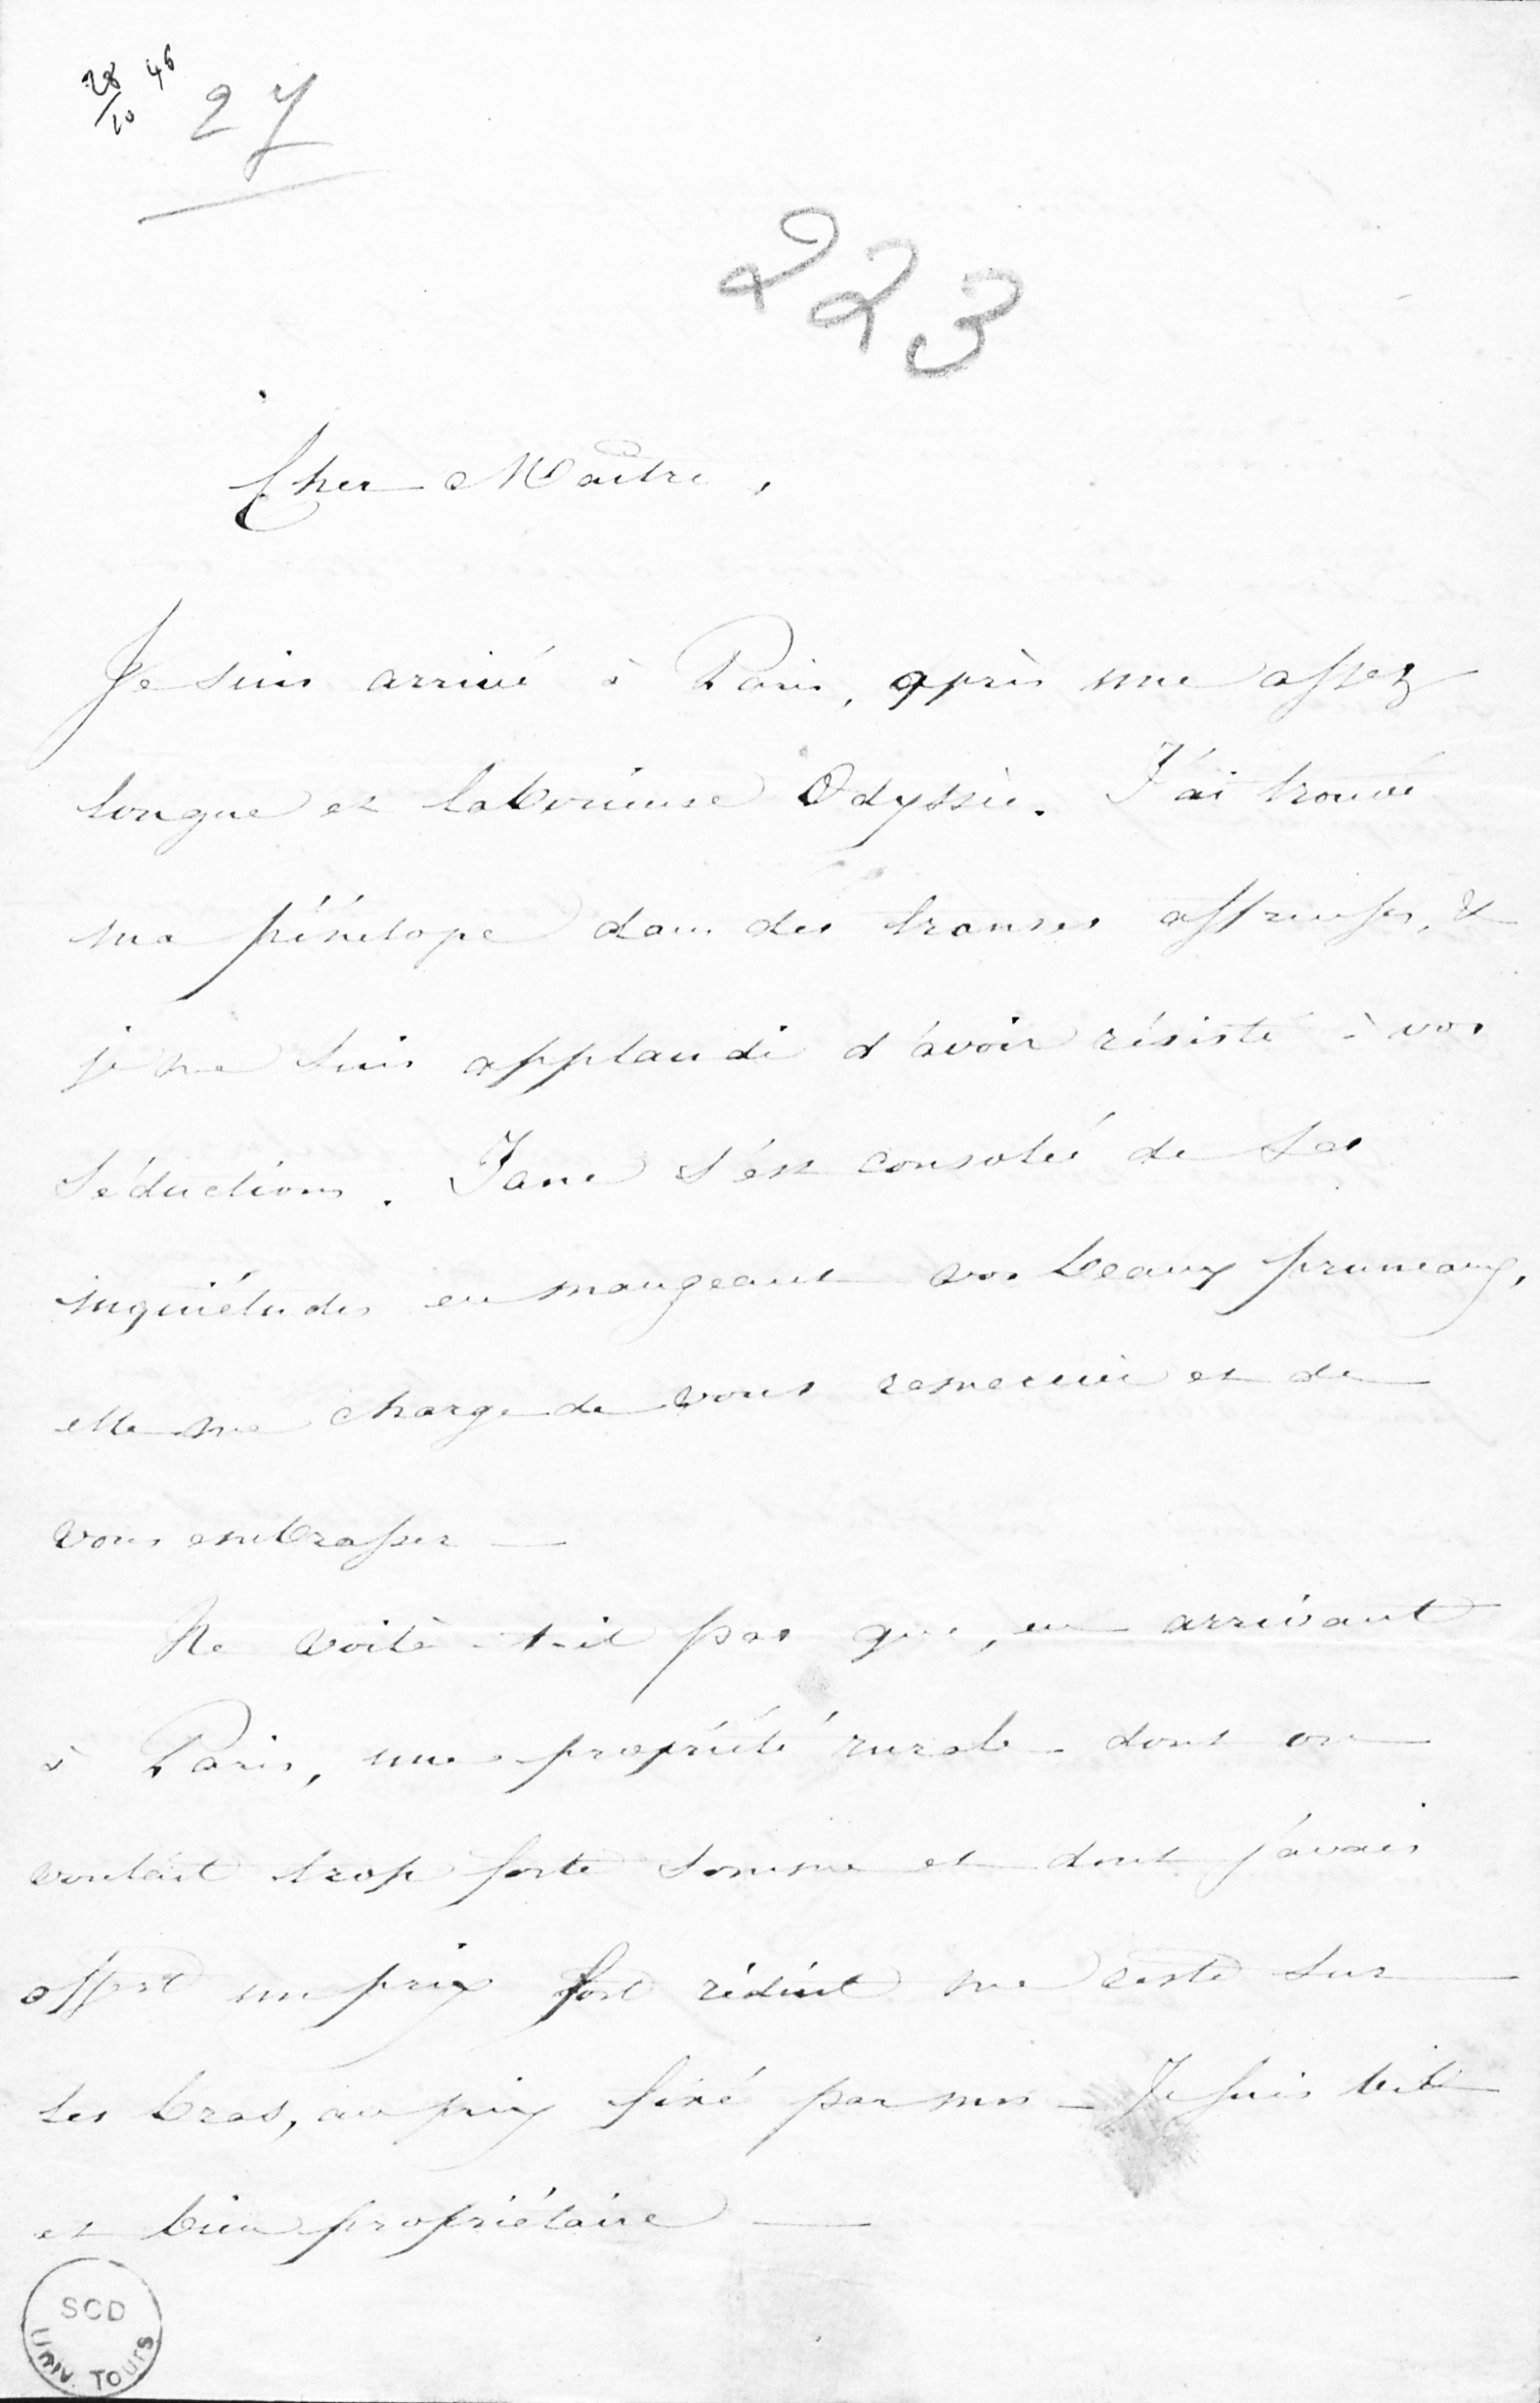 28/10 46
27
223
Cher Maître,
Je suis arrivé à Paris, après une assez
longue et laborieuse Odyssée. J'ai trouvé
ma pénélope dans des transes affreuses, &
je me suis applaudi d'avoir résisté à vos
séductions. Jane s'est consolée de ses
inquiétudes en mangeant vos beaux pruneaux,
elle me charge de vous remercier et de
vous embrasser —
Ne voilà-t-il pas que, en arrivant
à Paris, une propriété rurale dont on
voulait trop forte somme et dont j'avais
offert un prix fort réduit me reste sur
les bras, au prix fixé par moi — Je suis bel
et bien propriétaire —
SCD
UNIV. TOURS